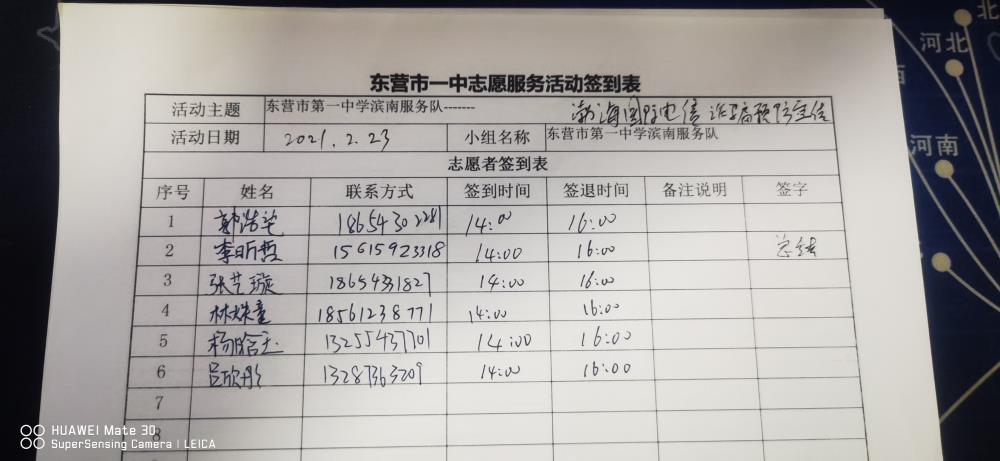 河北
东营市一中志愿服务活动签到表
活动主题 东营市第一中学滨南服务队------- 渤海国际电信诈骗预防宣传
河南
活动日期 2021.2.23 小组名称 东营市第一中学滨南服务队
志愿者签到表
序号 姓名 联系方式 签到时间 签退时间 备注说明 签字
1 18654302281 14:00 16:00
2 李昕哲 15615923318 14:00 16:00 总结
3 张艺璇 18654331827 14:00 16:00
4 林姝童 18561238771 14:00 16:00
5 杨晗玉 13255437701 14:00 16:00
6 吕欣彤 13287363209 14:00 16:00
7
8
HUAWEI Mate 30
SuperSensing Camera | LEICA